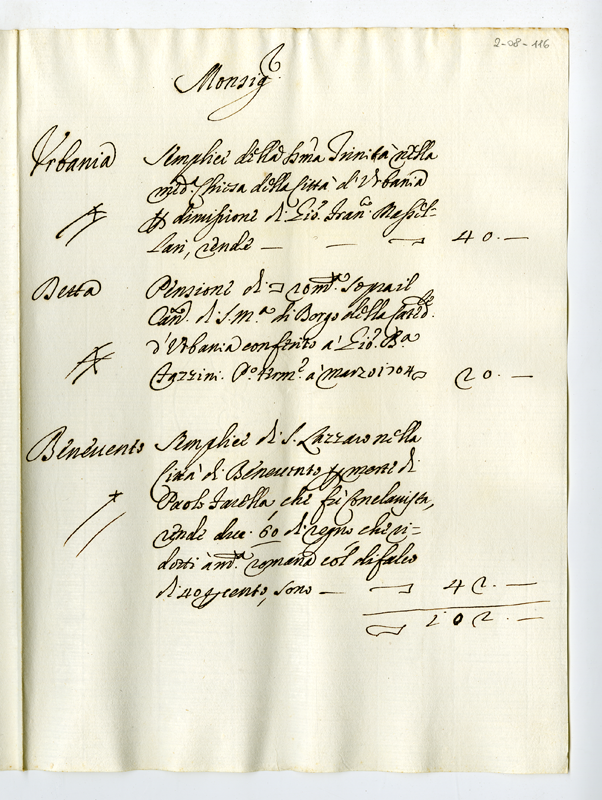 2-08-116
Monsig.r
Urbania Semplice della Ss.ma Trinità nella
med.a Chiesa della Città d'Urbania
p dimissione di Gio: Fran.co
lari, rende — — 40. —
Detta Pensione di rom.e sopra il
Can.to di S. M.a di Borgo della Cated.le
d'Urbania conferito à Gio: B.a
Tazzini. P.o term.e à marzo 1704 20. —
Beneuento Semplice di S. Lazzaro nella
Città di Beneuento p morte di
Paolo Farella che fù Conclavista,
rende duc: 60 di regno che ri=
dotti à m.ta romana col difalco
di 40 p cento, sono — 42. —
102. —